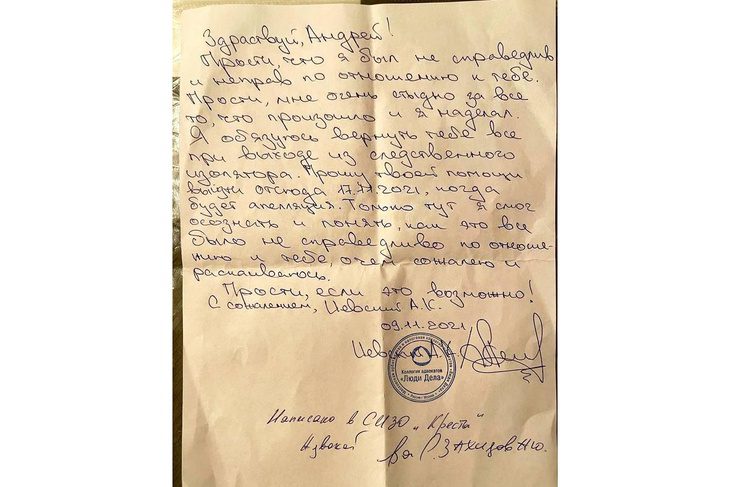 Здраствуй, Андрей!
Прости, что я был не справедлив
и неправ по отношению к тебе.
Прости, мне очень стыдно за все
то, что произошло и я наделал.
Я обязуюсь вернуть тебе все
при выходе из следственного
изолятора. Прошу твоей помощи
выйти отсюда 17.11.2021, когда
будет апелляция. Только тут я смог
осознать и понять, как это все
было не справедливо по отноше-
нию к тебе, о чем сожалею и
раскаиваюсь.
Прости, если это возможно!
С сожалением, Цевский А.К.
09.11.2021
А.К.
Коллегия адвокатов
«Люди Дела»
Написано в СИЗО „Кресты"
Адвокат